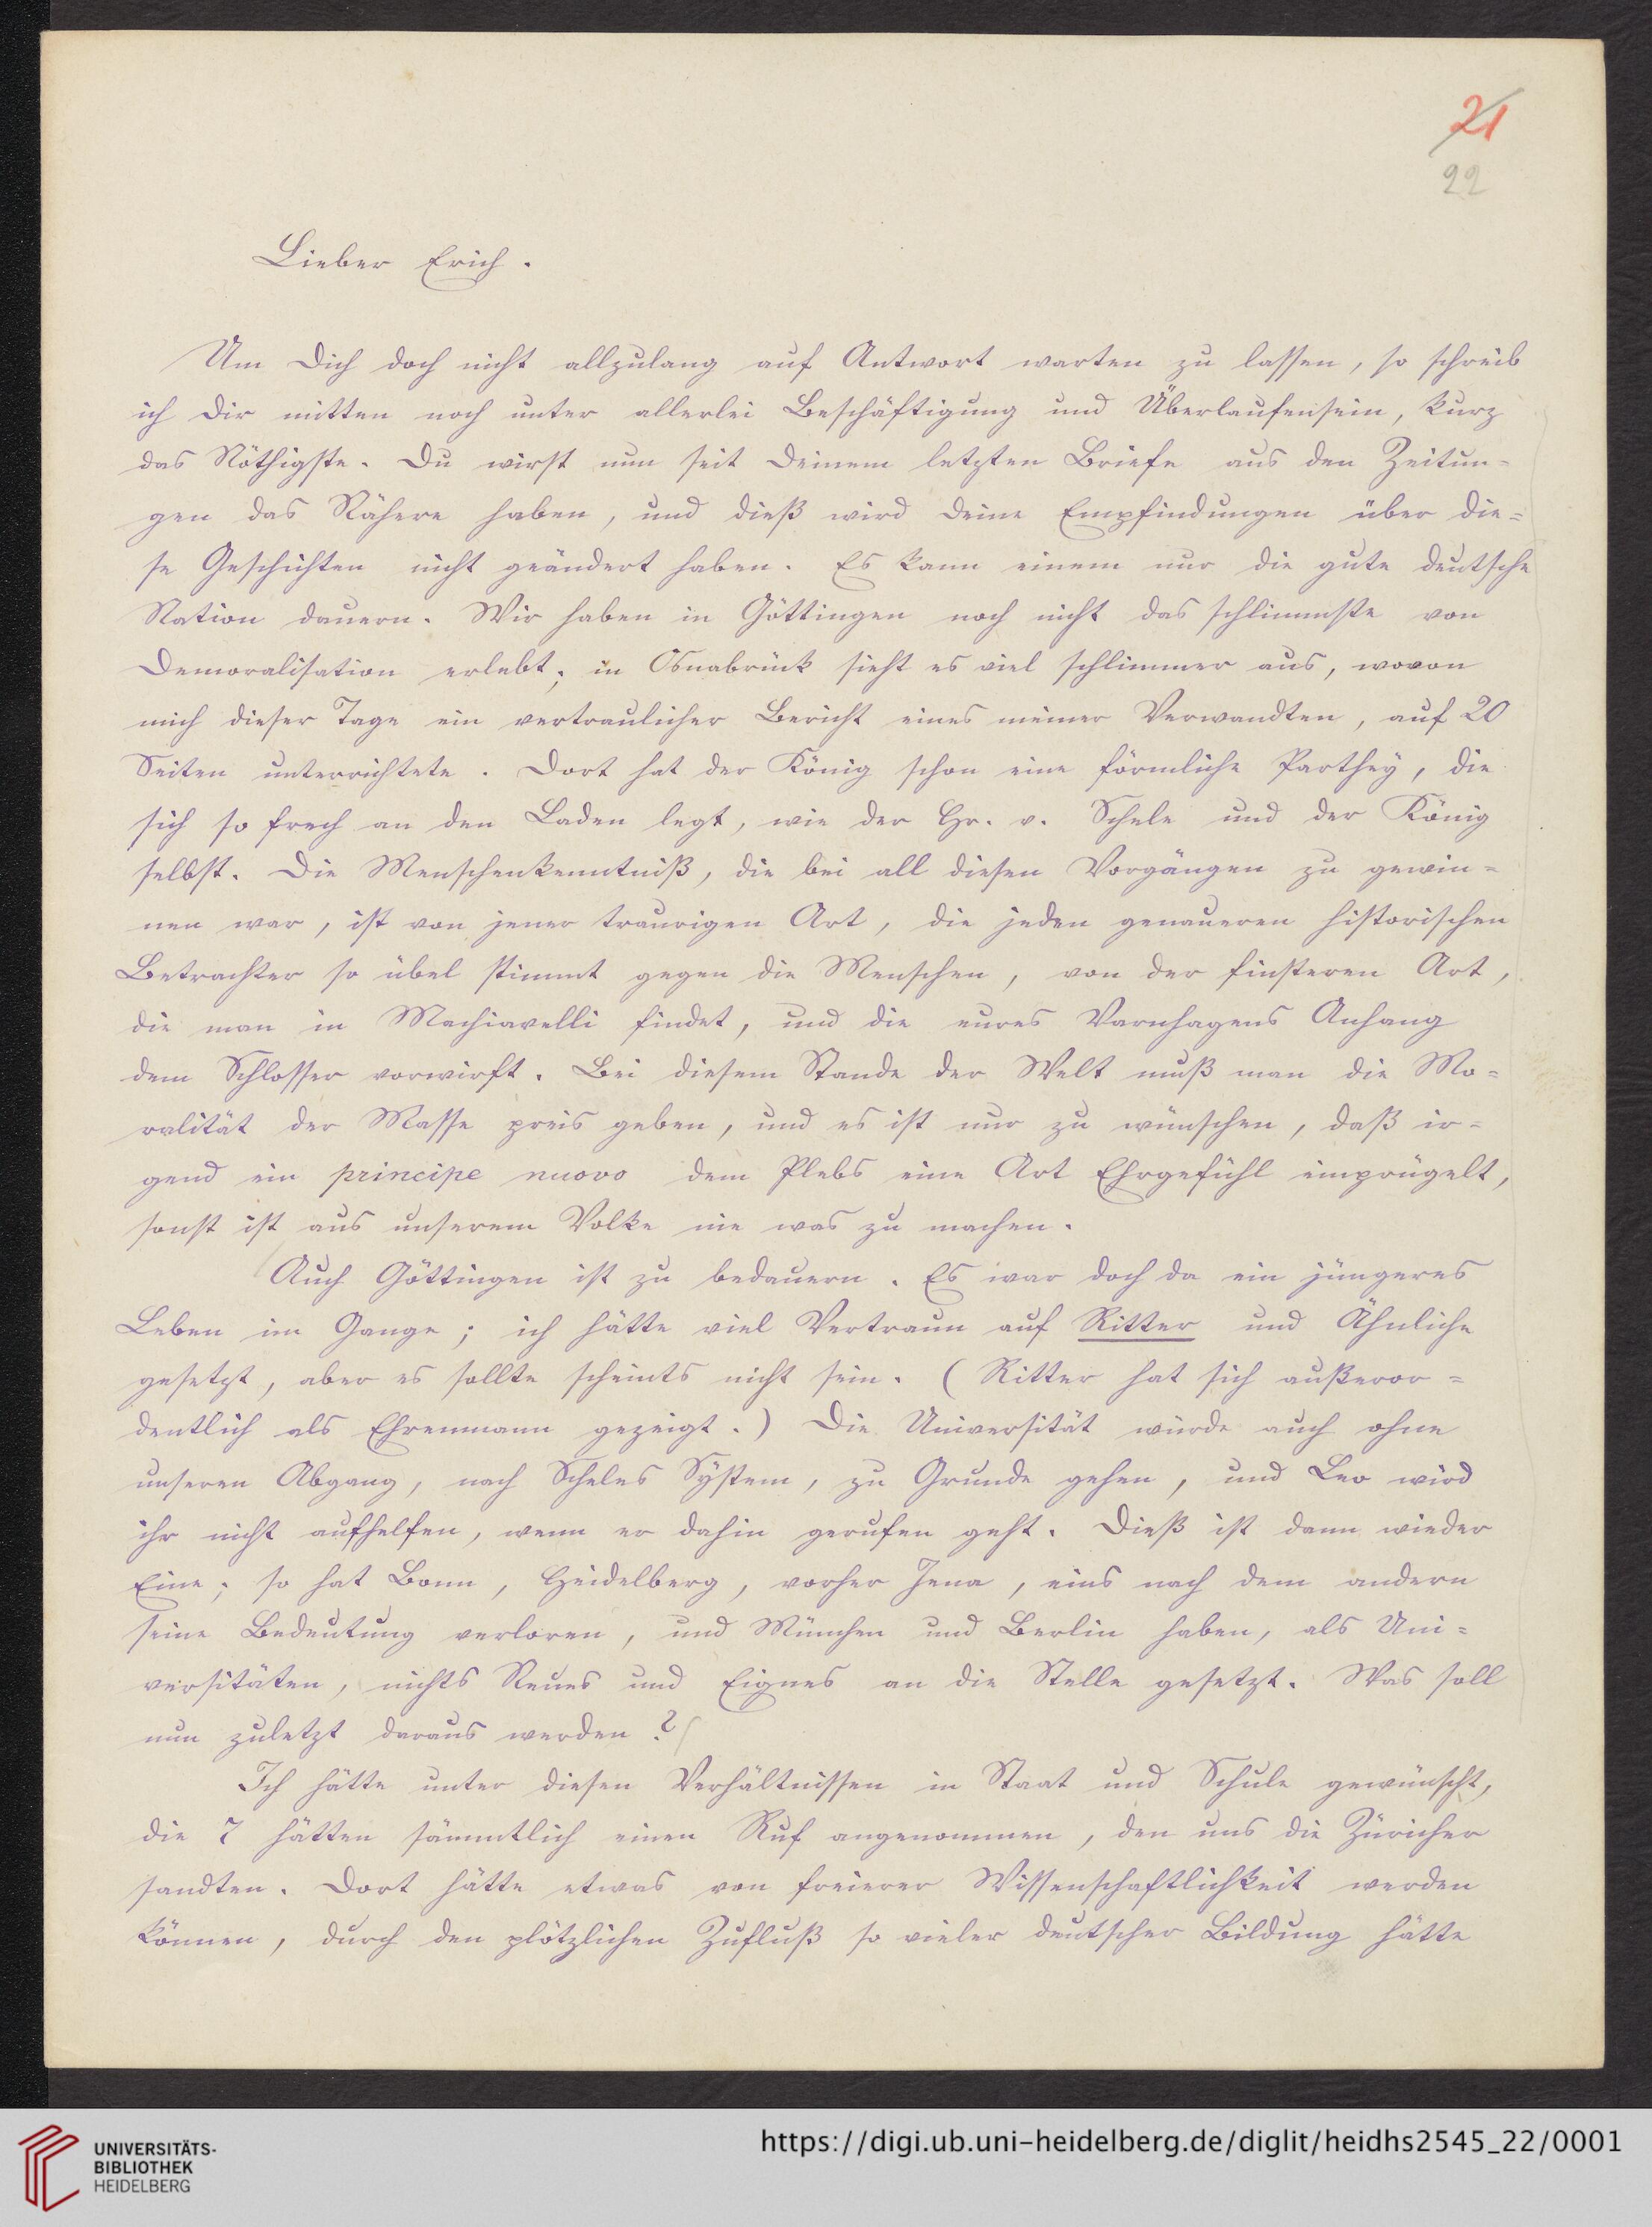 21
22
Lieber Erich.
Um Dich doch nicht allzulang auf Antwort warten zu lassen, so schreib
ich Dir mitten noch unter allerlei Beschäftigung und Überlaufensein, kurz
das Nöthigste. Du wirst nun seit Deinem letzten Briefe aus den Zeitun=
gen das Nähere haben, und dieß wird Deine Empfindungen über die=
se Geschichten nicht geändert haben. Es kann einem nur die gute deutsche
Nation dauern. Wir haben in Göttingen noch nicht das schlimmste von
Demoralisation erlebt; in Osnabrück sieht es viel schlimmer aus, wovon
mich dieser Tage ein vertraulicher Bericht eines meiner Verwandten, auf 20
Seiten unterrichtete. Dort hat der König schon eine förmliche Parthey, die
sich so frech an den Laden legt, wie der Hr. v. Schele und der König
selbst. Die Menschenkenntniß, die bei all diesen Vorgängen zu gewin=
nen war, ist von jener traurigen Art, die jeden genaueren historischen
Betrachter so übel stimmt gegen die Menschen, von der finsteren Art,
die man in Machiavelli findet, und die eures Varnhagens Anhang
dem Schlosser vorwirft. Bei diesem Stande der Welt muß man die Mo=
ralität der Masse preis geben, und es ist nur zu wünschen, daß ir=
gend ein principe nuovo dem Plebs eine Art Ehrgefühl einprügelt,
sonst ist aus unserem Volke nie was zu machen.
Auch Göttingen ist zu bedauern. Es war doch da ein jüngeres
Leben im Gange; ich hätte viel Vertraun auf Ritter und Ähnliche
gesetzt, aber es sollte scheints nicht sein. (Ritter hat sich außeror=
dentlich als Ehrenmann gezeigt.) Die Universität würde auch ohne
unseren Abgang, nach Scheles System, zu Grunde gehen, und Leo wird
ihr nicht aufhelfen, wenn er dahin gerufen geht. Dieß ist dann wieder
Eine; so hat Bonn, Heidelberg, vorher Jena, eins nach dem andern
seine Bedeutung verloren, und München und Berlin haben, als Uni=
versitäten, nichts Neues und Eignes an die Stelle gesetzt. Was soll
nun zuletzt daraus werden?
Ich hätte unter diesen Verhältnissen in Staat und Schule gewünscht,
die 7 hätten sämmtlich einen Ruf angenommen, den uns die Züricher
sandten. Dort hätte etwas von freierer Wissenschaftlichkeit werden
können, durch den plötzlichen Zufluß so vieler deutscher Bildung hätte
UNIVERSITÄTS-
BIBLIOTHEK
HEIDELBERG
https://digi.ub.uni-heidelberg.de/diglit/heidhs2545_22/0001